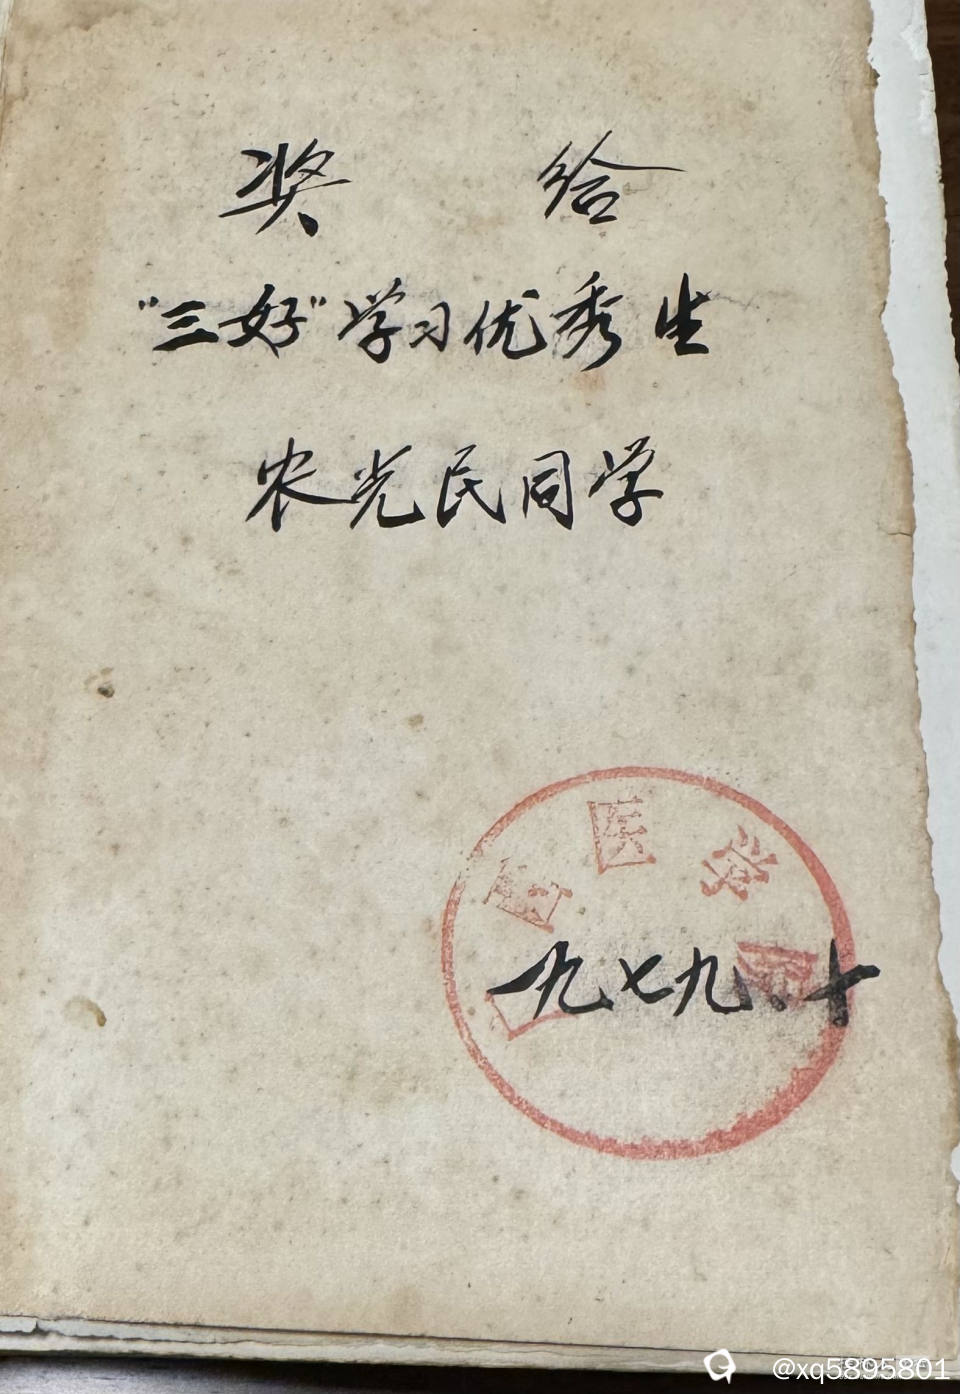 奖 给
"三好"学习优秀生
农光民同学
医学
一九七九、十
@xq5895801